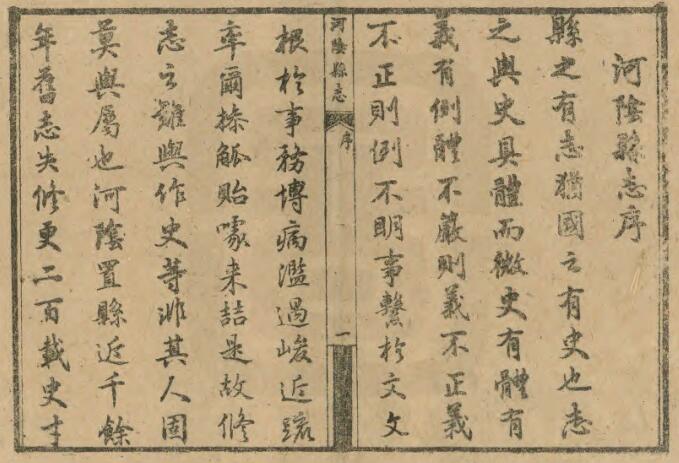 河陰縣志序
縣之有志猶國之有史也志
之與史具體而微史有體有
義有例體不嚴則義不正義
不正則例不明事繫於文文
河陰縣志
序
一
根於事務博病濫過峻近疏
率爾操觚貽噱来喆是故修
志之難與作史等非其人固
莫與屬也河陰置縣近千餘
年舊志失修更二百載史才